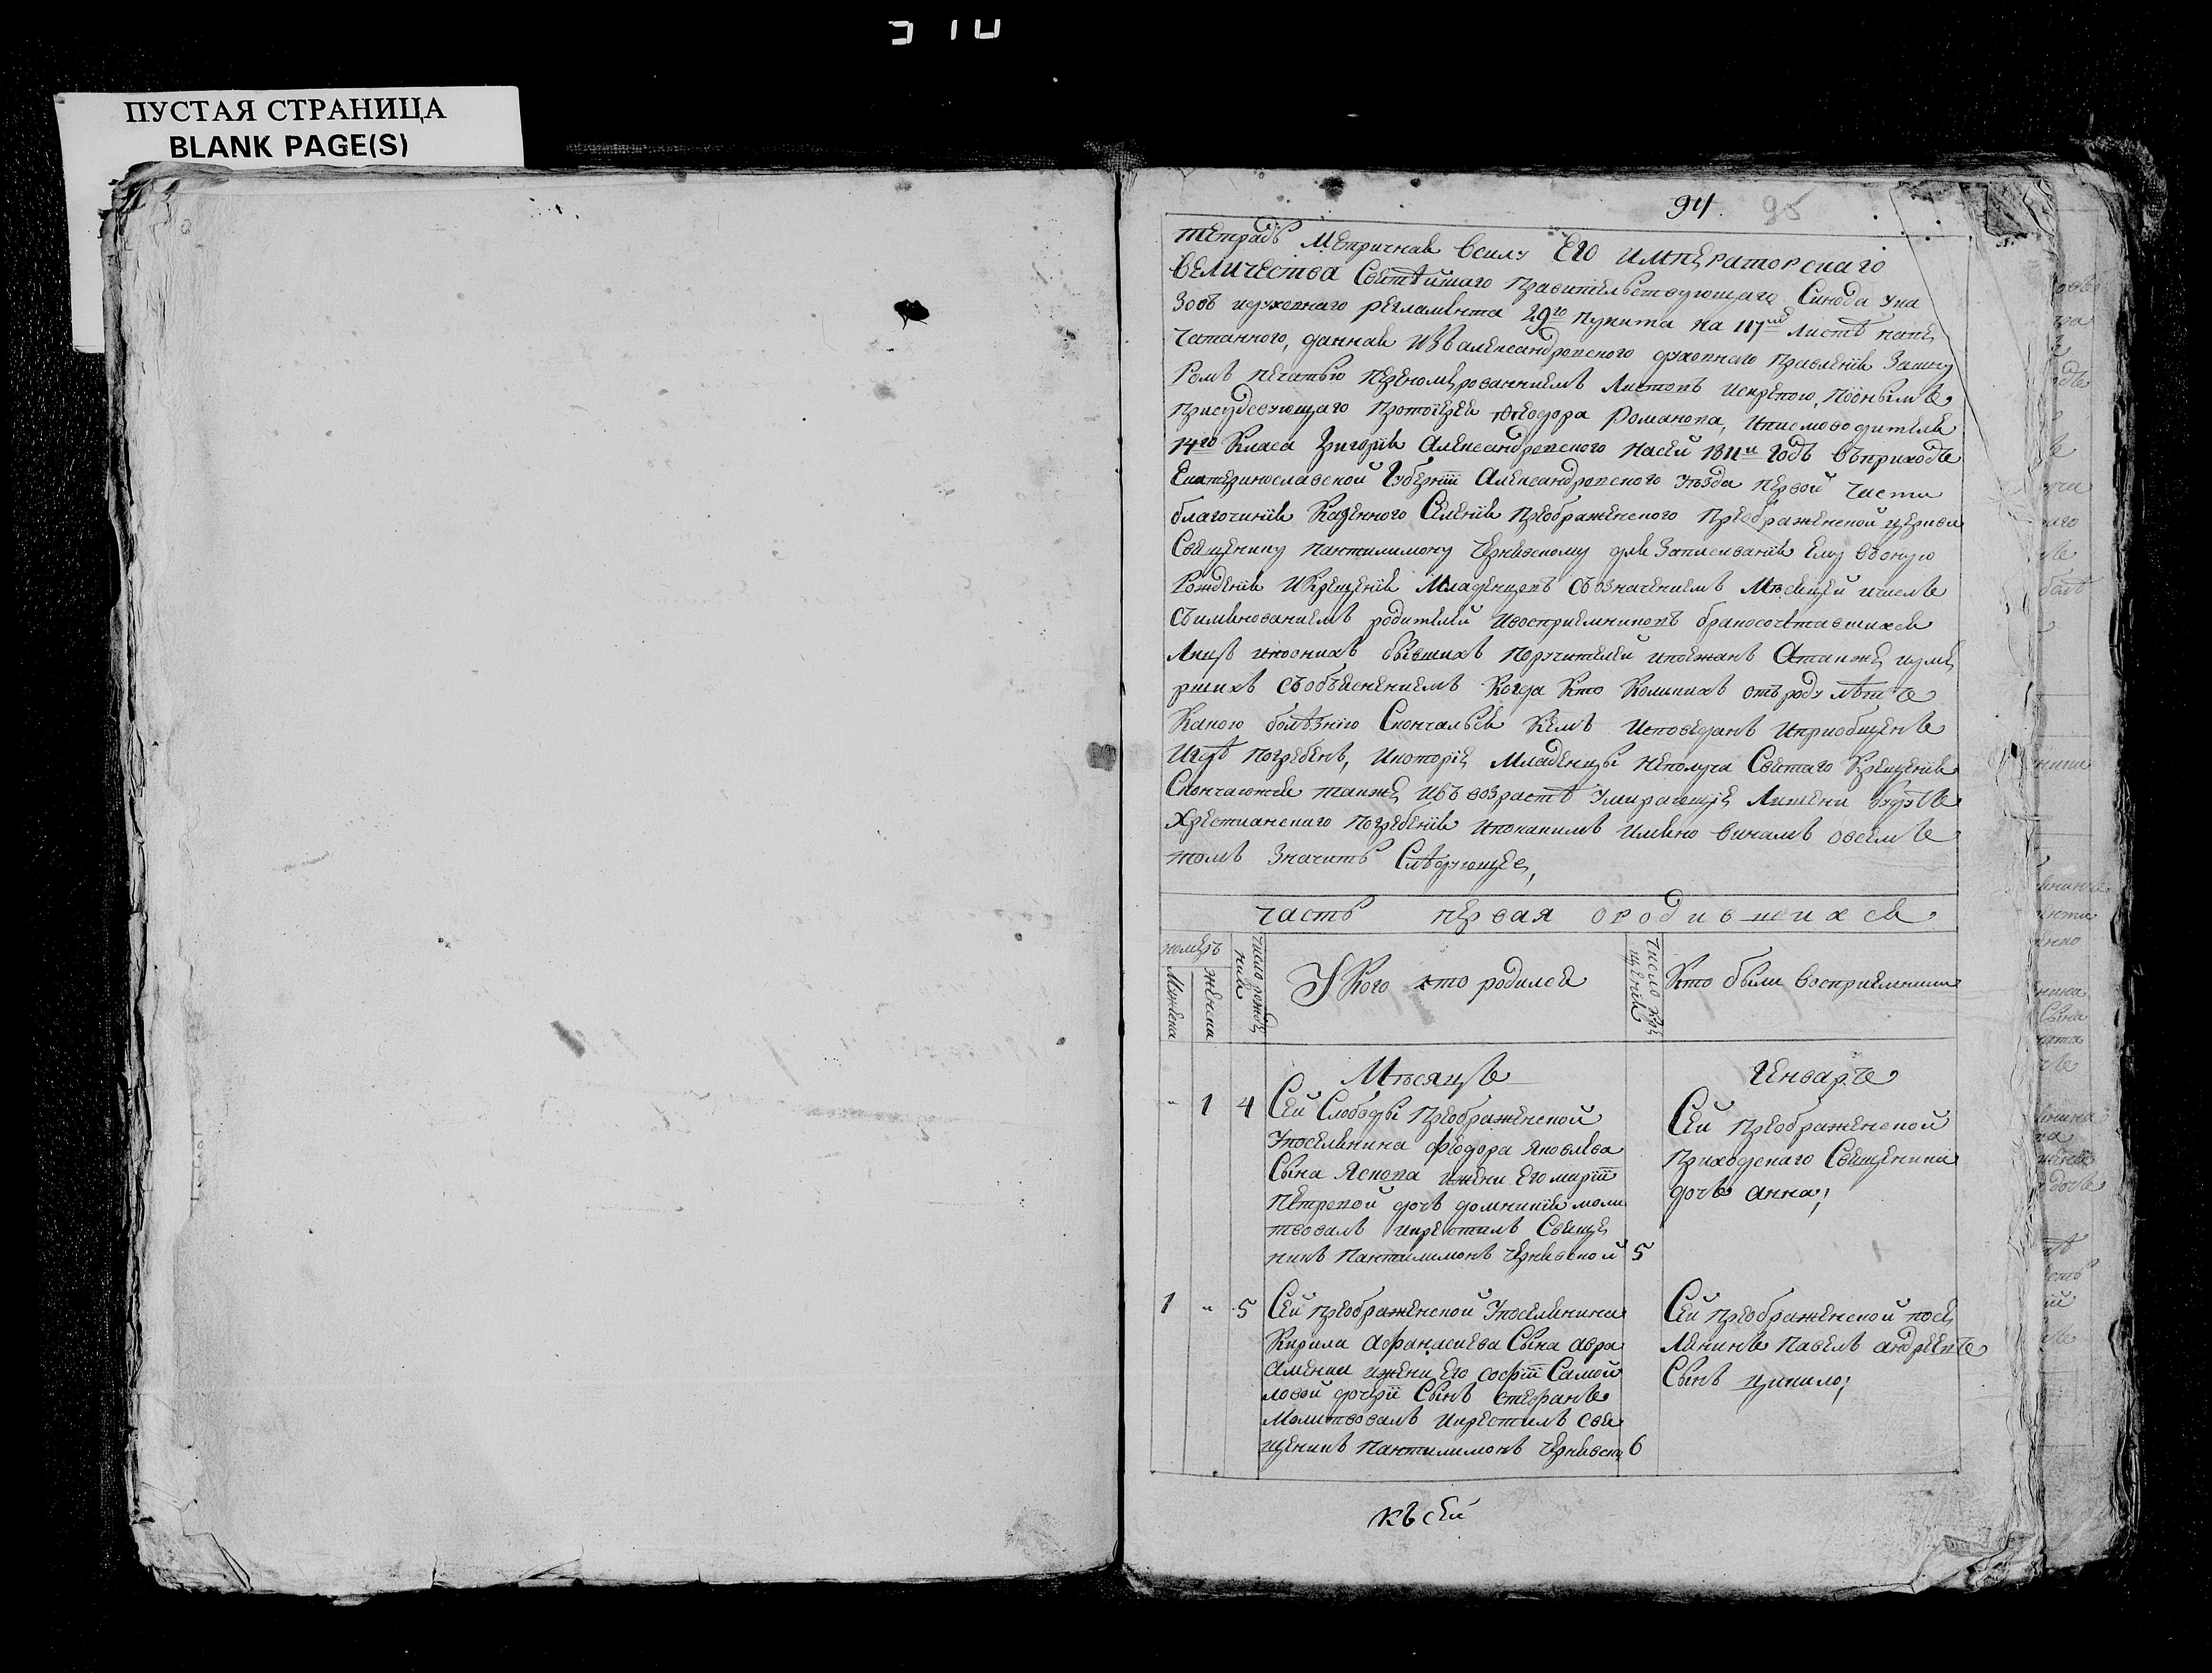 ПУСТАЯ СТРАНИЦА
BLANK PAGE(S)
94. 95
Тетрадь Метричная всилу Его императорскаго
величества Святѣйшаго Правительствующаго Синода Ука
зовъ идуховнаго регламента 29го пункта на 117мъ листѣ напе
чатанного, данная Изъалександровского духовнаго Правления Зашну
ромъ печатью перенумерованниемъ Листовъ искрепою, поонымъ
Присудсвующаго Протоіерея Ѳеодора Романова, иписмоводителя
14го Класа Григория Александровского насей 1811й Годъ въприходъ
Екатеринославской Губерніи Александровского уѣзда первой части
благочиния Казенного Селения преображенского Преображенской церкви
Священику пантилимону Чернявскому для Записивания Ему въоную
Рождения ИКрещения Младенцовъ Созначениемъ Мѣсяцей ичиселъ
Съимянованиемъ родителей Ивосприемниковъ бракосочетавшихся
Лицъ ипооныхъ бывшихъ поручителей ипоезжанъ Атакже иуме
ршихъ собъяснениемъ Когда Кто Коликихъ отъроду лѣтъ
Какою болѣзнію Скончался Кемъ Исповеданъ Иприобщенъ
Игдѣ погребенъ, Икоторіе Младенцы неполуча Святаго Крещения
Скончаются также Ивъвозрастѣ умирающіе Лишени будутъ
Христианскаго погребения Ипокакимъ Имянно винамъ овсемъ
томъ Значитъ Слѣдующее,
часть первая ородившихся
номеръ
Мужеска
женска
число рожде
ния
У Кого кто родился
Число кре
щения
Кто были восприемники
Мѣсяцъ
Генварь
1 4 Сей Слободы Преображенской
Упоселянина Фіодора Яковлева
Сына Яснопа ижени Его маріи
Петровой дочъ домникия моли
твовалъ икрестилъ Свяще
никъ Пантилимонъ Чернявской 5
Сей Преображенской
Приходскаго Священика
дочъ анна;
1 " 5 Сей преображенской Упоселянина
Кирила Афанасиева Сына авра
аменки ижени Его софіи Самой
ловой дочеріи Сынъ Стефанъ
Молитвовалъ икрестилъ Свя
щеникъ Пантилимонъ Чернявск 6
Сей преображенской посе
лянинъ Павелъ андреевъ
Сынъ цикило;
къ сей